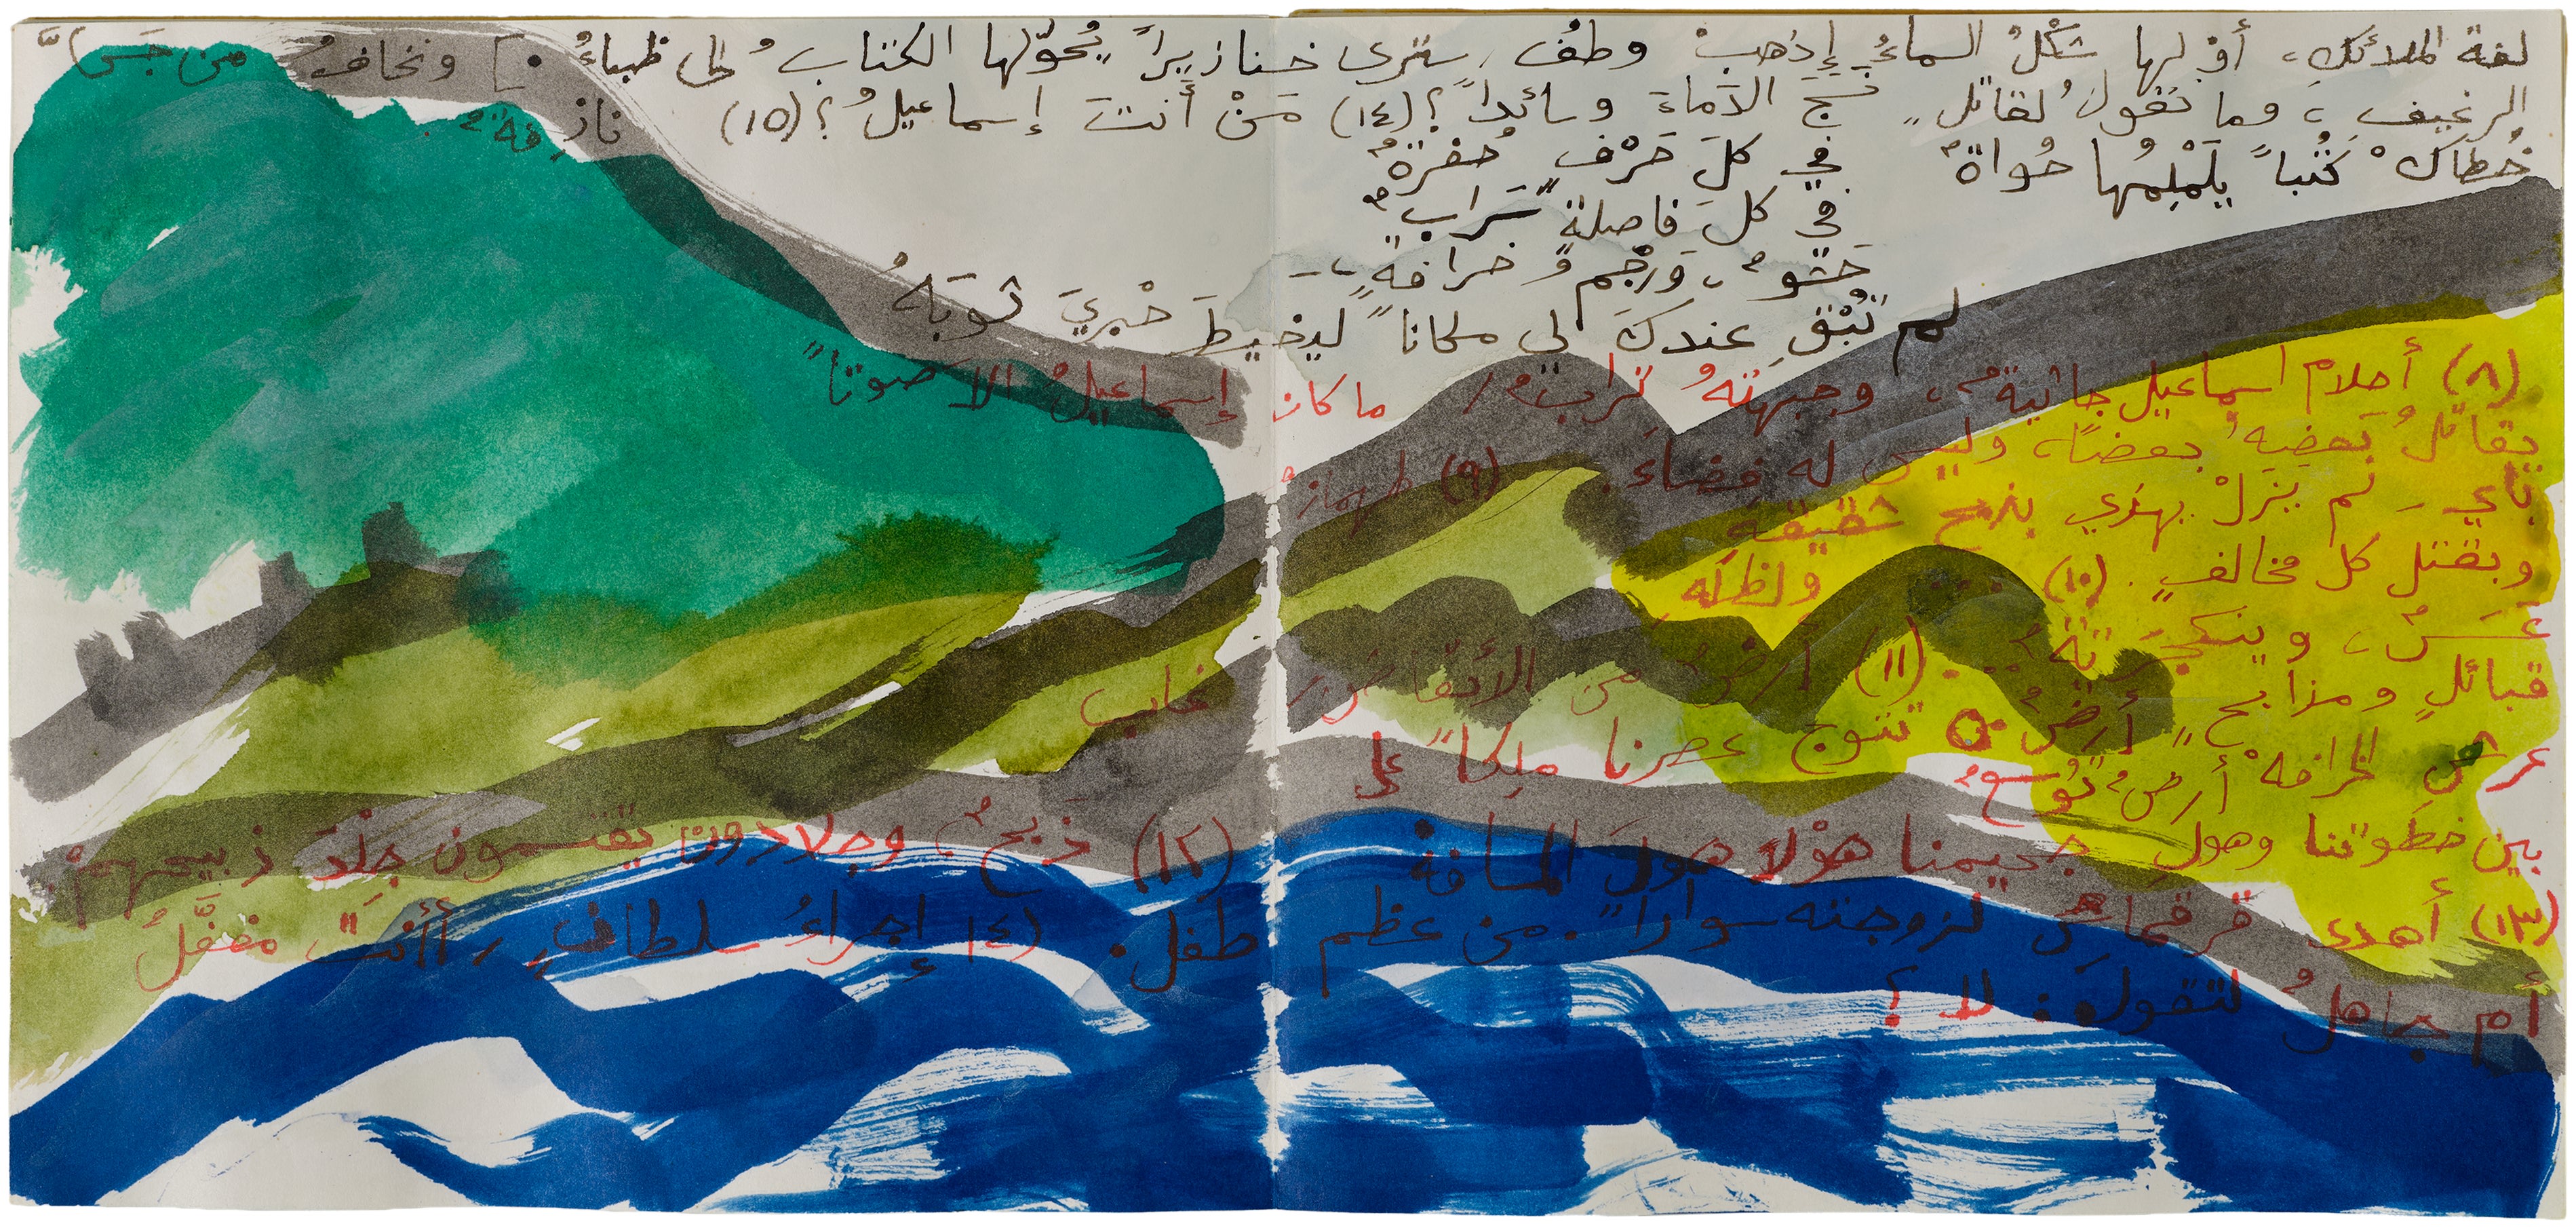 لغة الملائكِ، أوْ لها شكْلُ السماءُ إذهبْ وطفْ، سترى خنازيراً يُحوّلها الكتابُ إلى ظباءُ [•] ونخافُ من جَسَّ
الرغيفِ، وما تقولُ لقاتلٍ نسجَ الدّماءَ وسائداً؟ (١٤) مَنْ أنتَ إسماعيلُ؟ (١٥) نازفةٌ
خُطاكْ كُتُباً يلَمْلِمُها حُواةٌ في كلّ حَرْفٍ حُفرةٌ
في كلّ فاصلةٍ سَرابٌ
حَشْوٌ، ورجْمُ خرافةٍ،
لم تُبْقِ عندكَ لي مكاناً ليخيطَ حبْريَ ثوبَهُ
(٨) أحلام اسماعيل جاثيةٌ، وجبهتهُ ترابٌ / ما كان إسماعيلُ إلا صوتاً
يقاتلُ بعضِهِ بعضاً، وليس له فضاءَ. (٩)
نأيٍ، لم يزلْ يهذي بذبح شقيقهِ
وبقتل كل مخالفٍ. (١٠) ... ولظلّه
عَسَسٌ، وينكجريّتهُ... (١١) أرضٌ من الأنقاضِ، غاب
قبائلٍ ومذابحٍ، أرضٌ • تتوج عصرنا ملكاً على
عرشِ الخرافهْ أرضٌ توسع
بين خطوتنا وهولِ جحيمنا هوْلاً هولَ المسافهْ (١٢) ذبحٌ، وجلادون يقتسمون جِلْدَ ذبيحهمْ
(١٣) أهدى قرقماسُ لزوجته سواراً. من عظم طفل. (١٤) إجراءُ سلطانٍ، أأنتَ مغفَّلُ
أم جاهلُ لتقولَ: لا؟